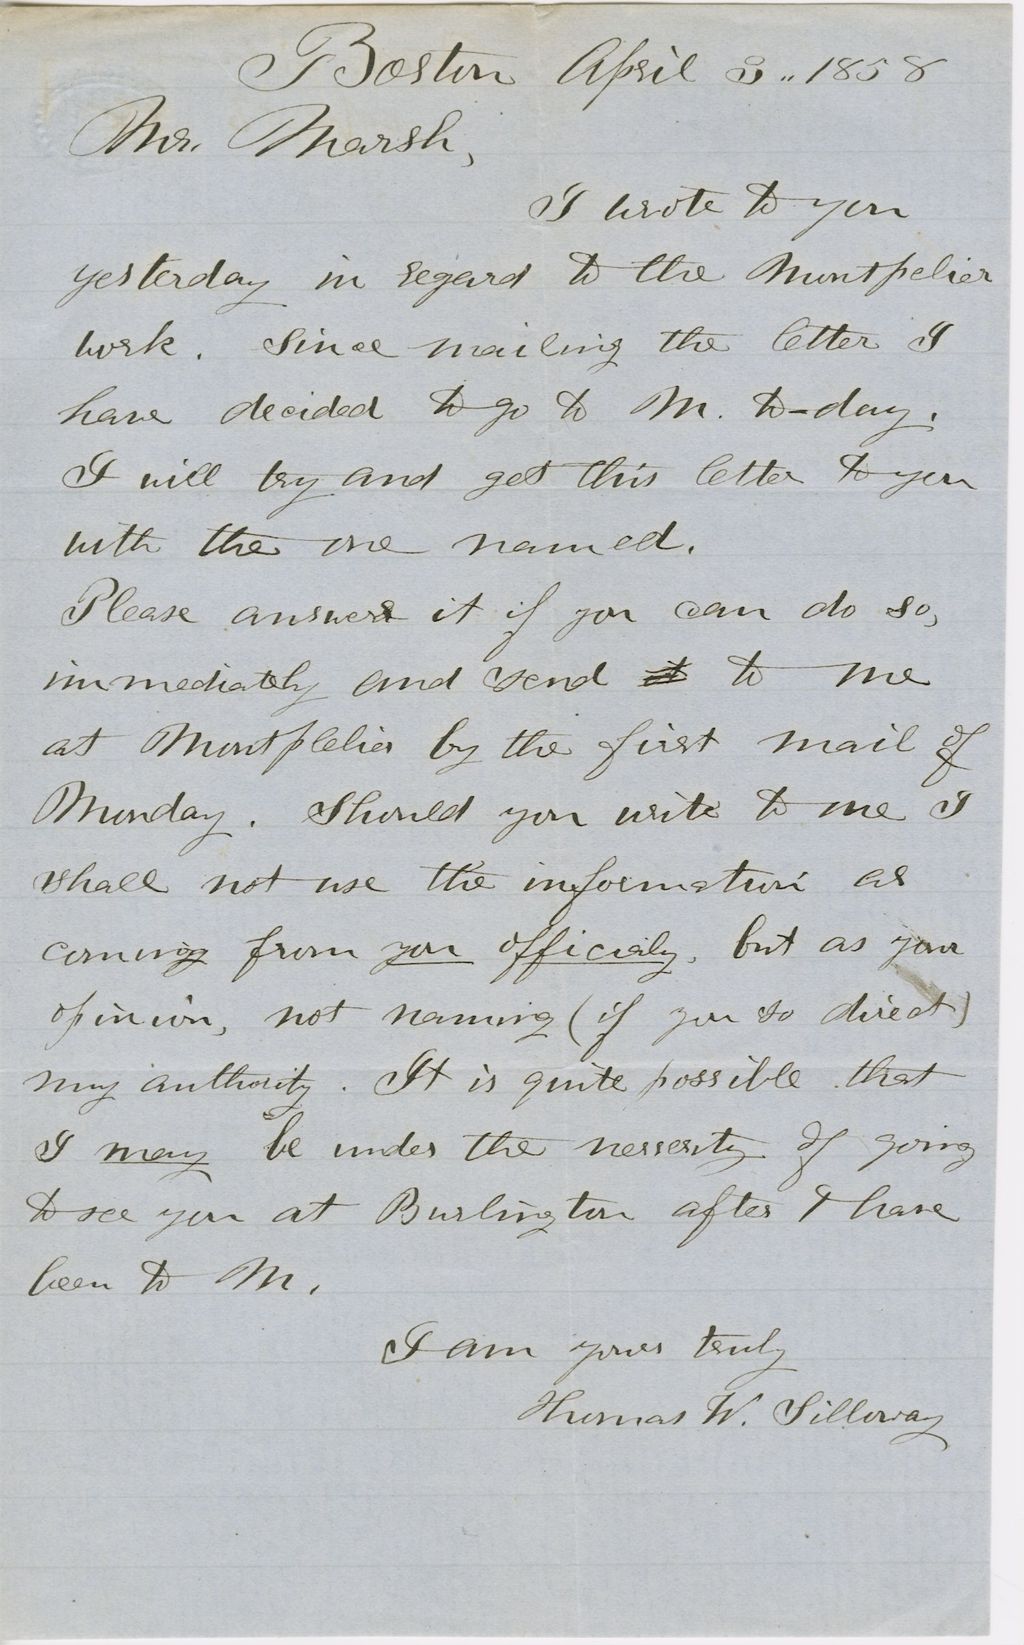 Boston April 3.. 1858
Mr. Marsh,
I wrote to you
yesterday in regard to the Montpelier
work. Since mailing the letter I
have decided to go to M. to-day.
I will try and get this letter to you
with the one named.
Please answer it if you can do so,
immediately and send it to me
at Montplelier by the first mail of
Monday. Should you write to me I
shall not use the information as
coming from you officialy, but as your
opinion, not naming (if you so direct)
my authority. It is quite possible that
I may be under the nessesity of going
to see you at Burlington after I have
been to M.
I am yours truly
Thomas W. Silloway